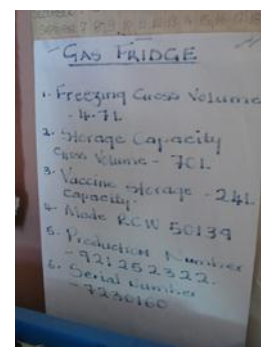 GAS FRIDGE
1. Freezing Gross Volume
- 4.7L
2. Storage Capacity
Gross Volume - 70L
3. Vaccine storage - 24L
capacity.
4. Mode RCW 50134
5. Production Number
- 921252322.
6. Serial number
- 7230160